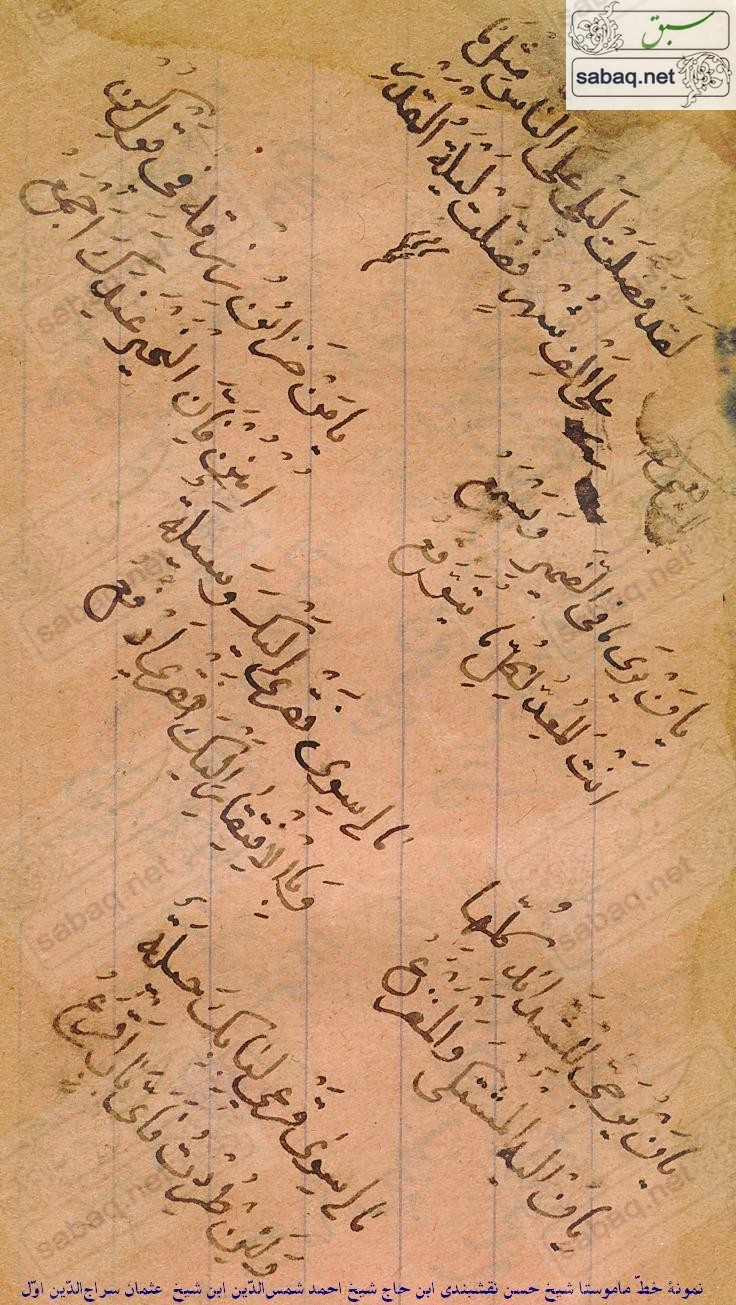 سبق
sabaq.net
لَقَد فُضِّلَت لَيلَى عَلَى النَّاسِ مِثلَمَا
عَلَى اَلفِ شَهرٍ فُضِّلَت لَيلَةُ القَدرِ
يَا مَن يَرَى مَا فِى الضَّمِيرِ وَيَسمَعُ
اَنتَ المُعَدُّ لِكُلِّ مَا يُتَوَقَّعُ
يَا مَن يُرَجَّى لِلشَّدَائِدِ كُلِّهَا
يَا مَن اِلَيهِ المُشتَكَى وَالمَفزَعُ
يَا مَن خَزَائِنُ رِزقِهِ فِى قَولِ كُن
اُمنُن فَاِنَّ الخَيرَ عِندَكَ اَجمَعُ
مَالِى سِوَى فَقرِى اِلَيكَ وَسِيلَةٌ
وَبِالاِفتِقَارِ اِلَيكَ فَقرِى اَدفَعُ
مَالِى سِوَى قَرعِى لِبَابِكَ حِيلَةٌ
وَلَئِن طُرِدتُ فَاَىَّ بَابٍ اَقرَعُ
نمونهٔ خطّ ماموستا شیخ حسن نقشبندی ابن حاج شیخ احمد شمس‌الدّین ابن شیخ عثمان سراج‌الدّین اوّل